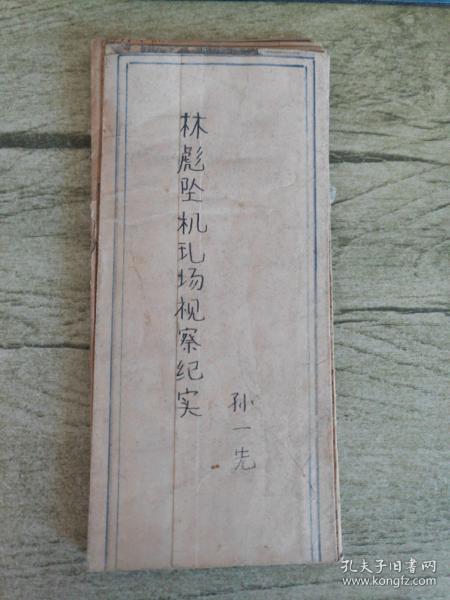 林彪坠机现场视察纪实
孙一先
孔夫子旧书网
www.kongfz.com